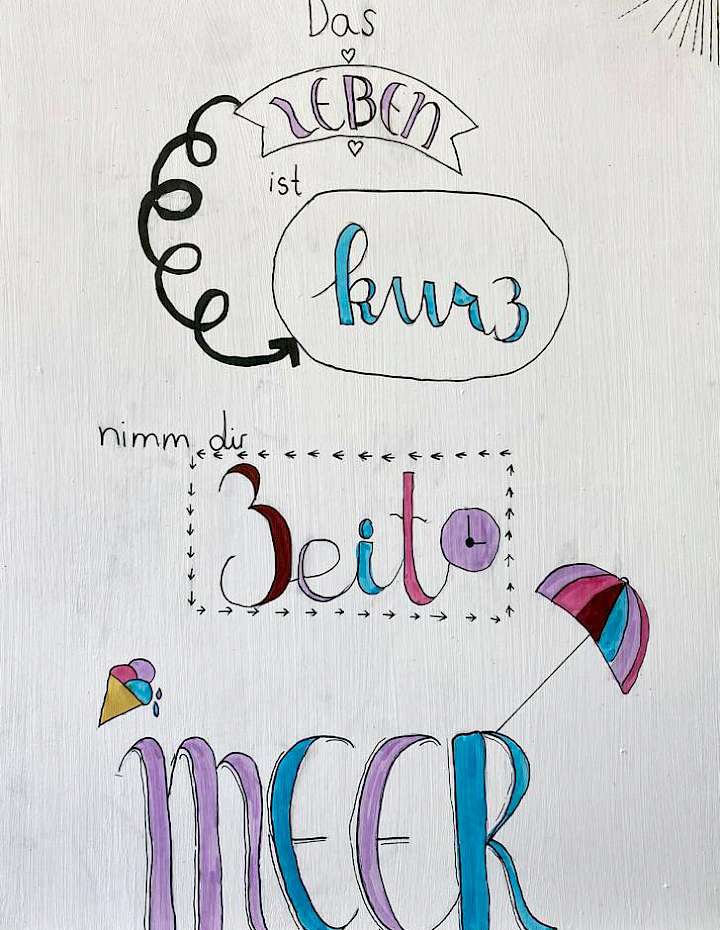 Das
LEBEN
ist
kurz
nimm dir
Zeit
MEER